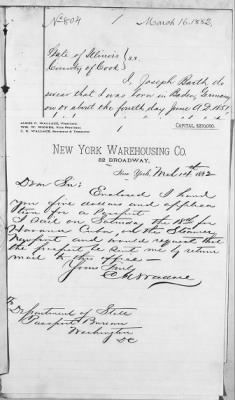 No 804 / March 16. 1882.
State of Illinois } S.S.
County of Cook
I, Joseph Barth do
swear that I was born in Baden, Germany
on or about the fourth day June A.D. 1851
CAPITAL $250,000.
NEW YORK WAREHOUSING CO.
52 BROADWAY,
New York, Mch 14th 1882
Dear Sir: Enclosed I hand
you five dollars and applica
tion for a Passport
I sail on Saturday the 18th for
Havanna Cuba, via the Steamer
Newport and would request that
the passport be sent me by return
mail to this office —
Yours Truly
Wallace
To
Department of State
Passport Bureau
Washington
DC